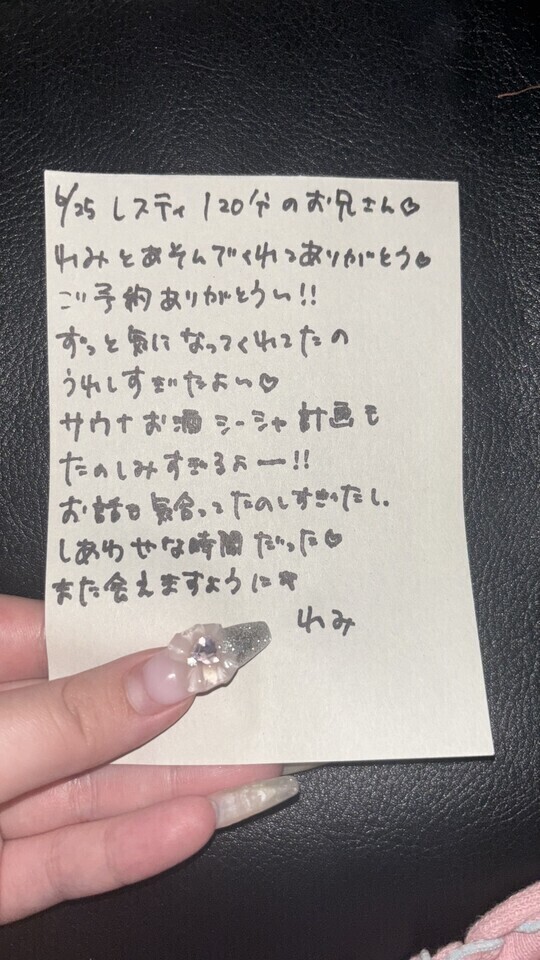 6/25 レスティ 120分のお兄さん♡
れみとあそんでくれてありがとう♡
ご予約ありがとうい!!
ずっと気になってくれてたの
うれしすぎたよい♡
サウナお酒シーシャ計画も
たのしみすぎるよー!!
お話も気合ってたのしすぎたし、
しあわせな時間だった♡
また会えますように☆
れみ